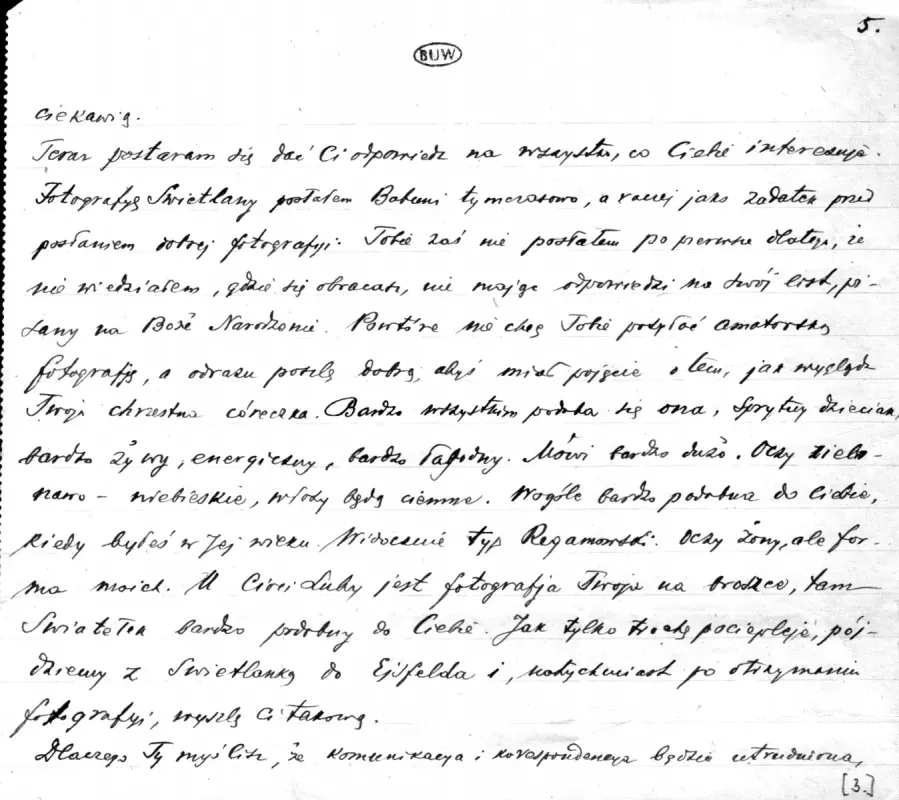 5.
BUW
ciekawią.
Teraz postaram się dać Ci odpowiedz na wszystko, co Ciebie interesuje.
Fotografję Swietlany posłałem Babuni tymczasowo, a raczej jako zadatek przed
posłaniem dobrej fotografji. Tobie zaś nie posłałem po pierwsze dlatego, że
nie wiedziałem, gdzie się obracasz, nie mając odpowiedzi na swój list, pi-
sany na Boże Narodzenie. Powtóre nie chcę Tobie posyłać amatorską
fotografję, a odrazu poszlę dobrą, abyś miał pojęcie o tem, jak wygląda
Twoja chrzestna córeczka. Bardzo wszystkim podoba się ona, Sprytny dzieciak,
bardzo żywy, energiczny, bardzo łagodny. Mówi bardzo dużo. Oczy zielo-
nawo - niebieskie, włosy będą ciemne. Wogóle bardzo podobna do Ciebie,
kiedy byłeś w Jej wieku. Widocznie typ Regamowski. Oczy żony, ale for-
ma moich. U Cioci Luby jest fotografja Twoja na broszce, tam
Swiatełek bardzo podobny do Ciebie. Jak tylko trochę pocieplеje, pój-
dziemy z Swietlanką do Ejsfelda i, natychmiast po otrzymaniu
fotografji, wyszlę Ci takową.
Dlaczego Ty myślisz, że komunikacja i korespondencja będzie utrudniona,
[3.]